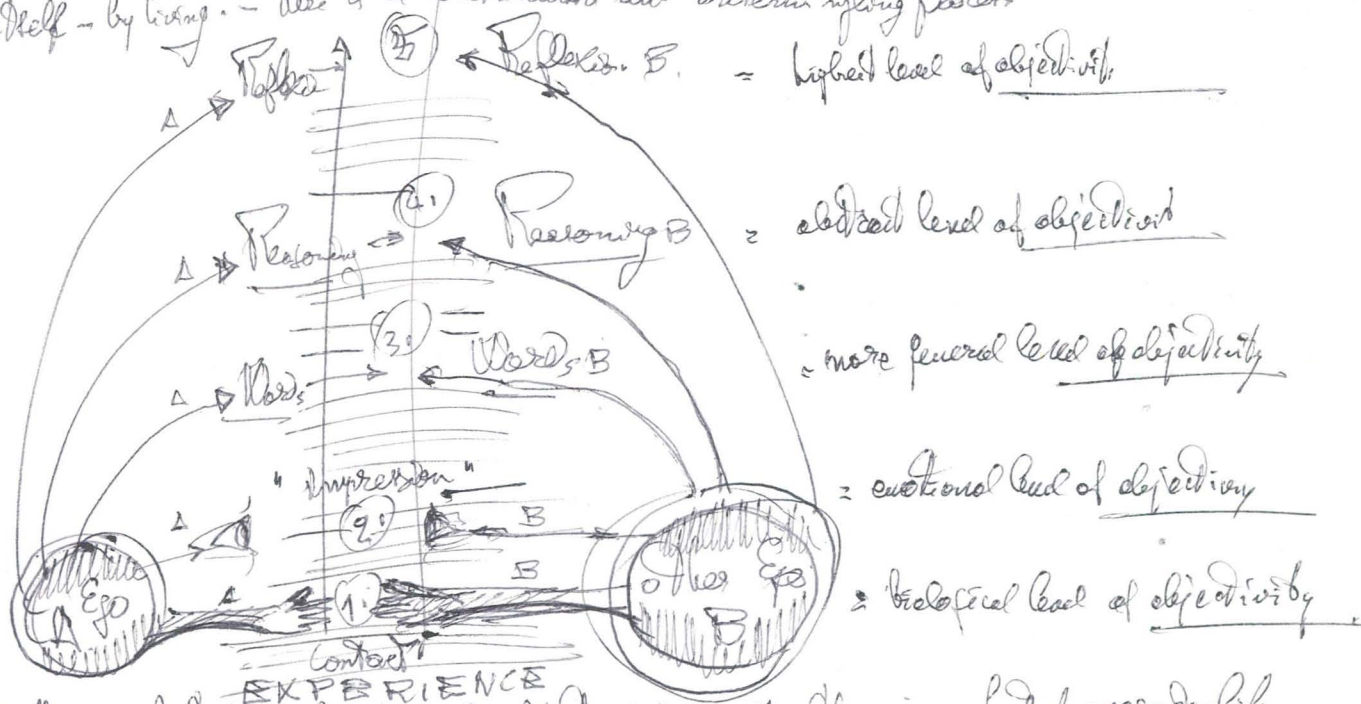 itself – by living. –
Reflexion B. = highest level of objectivity
5.
A
4.
Reasoning Reasoning B = abstract level of objectivity
A
3.
Words Words B = more general level of objectivity
A
"Impression"
= emotional level of objectivity
A 2. B
A 1. B
Ego Other Egos = biological level of objectivity
A B
Contact
EXPERIENCE